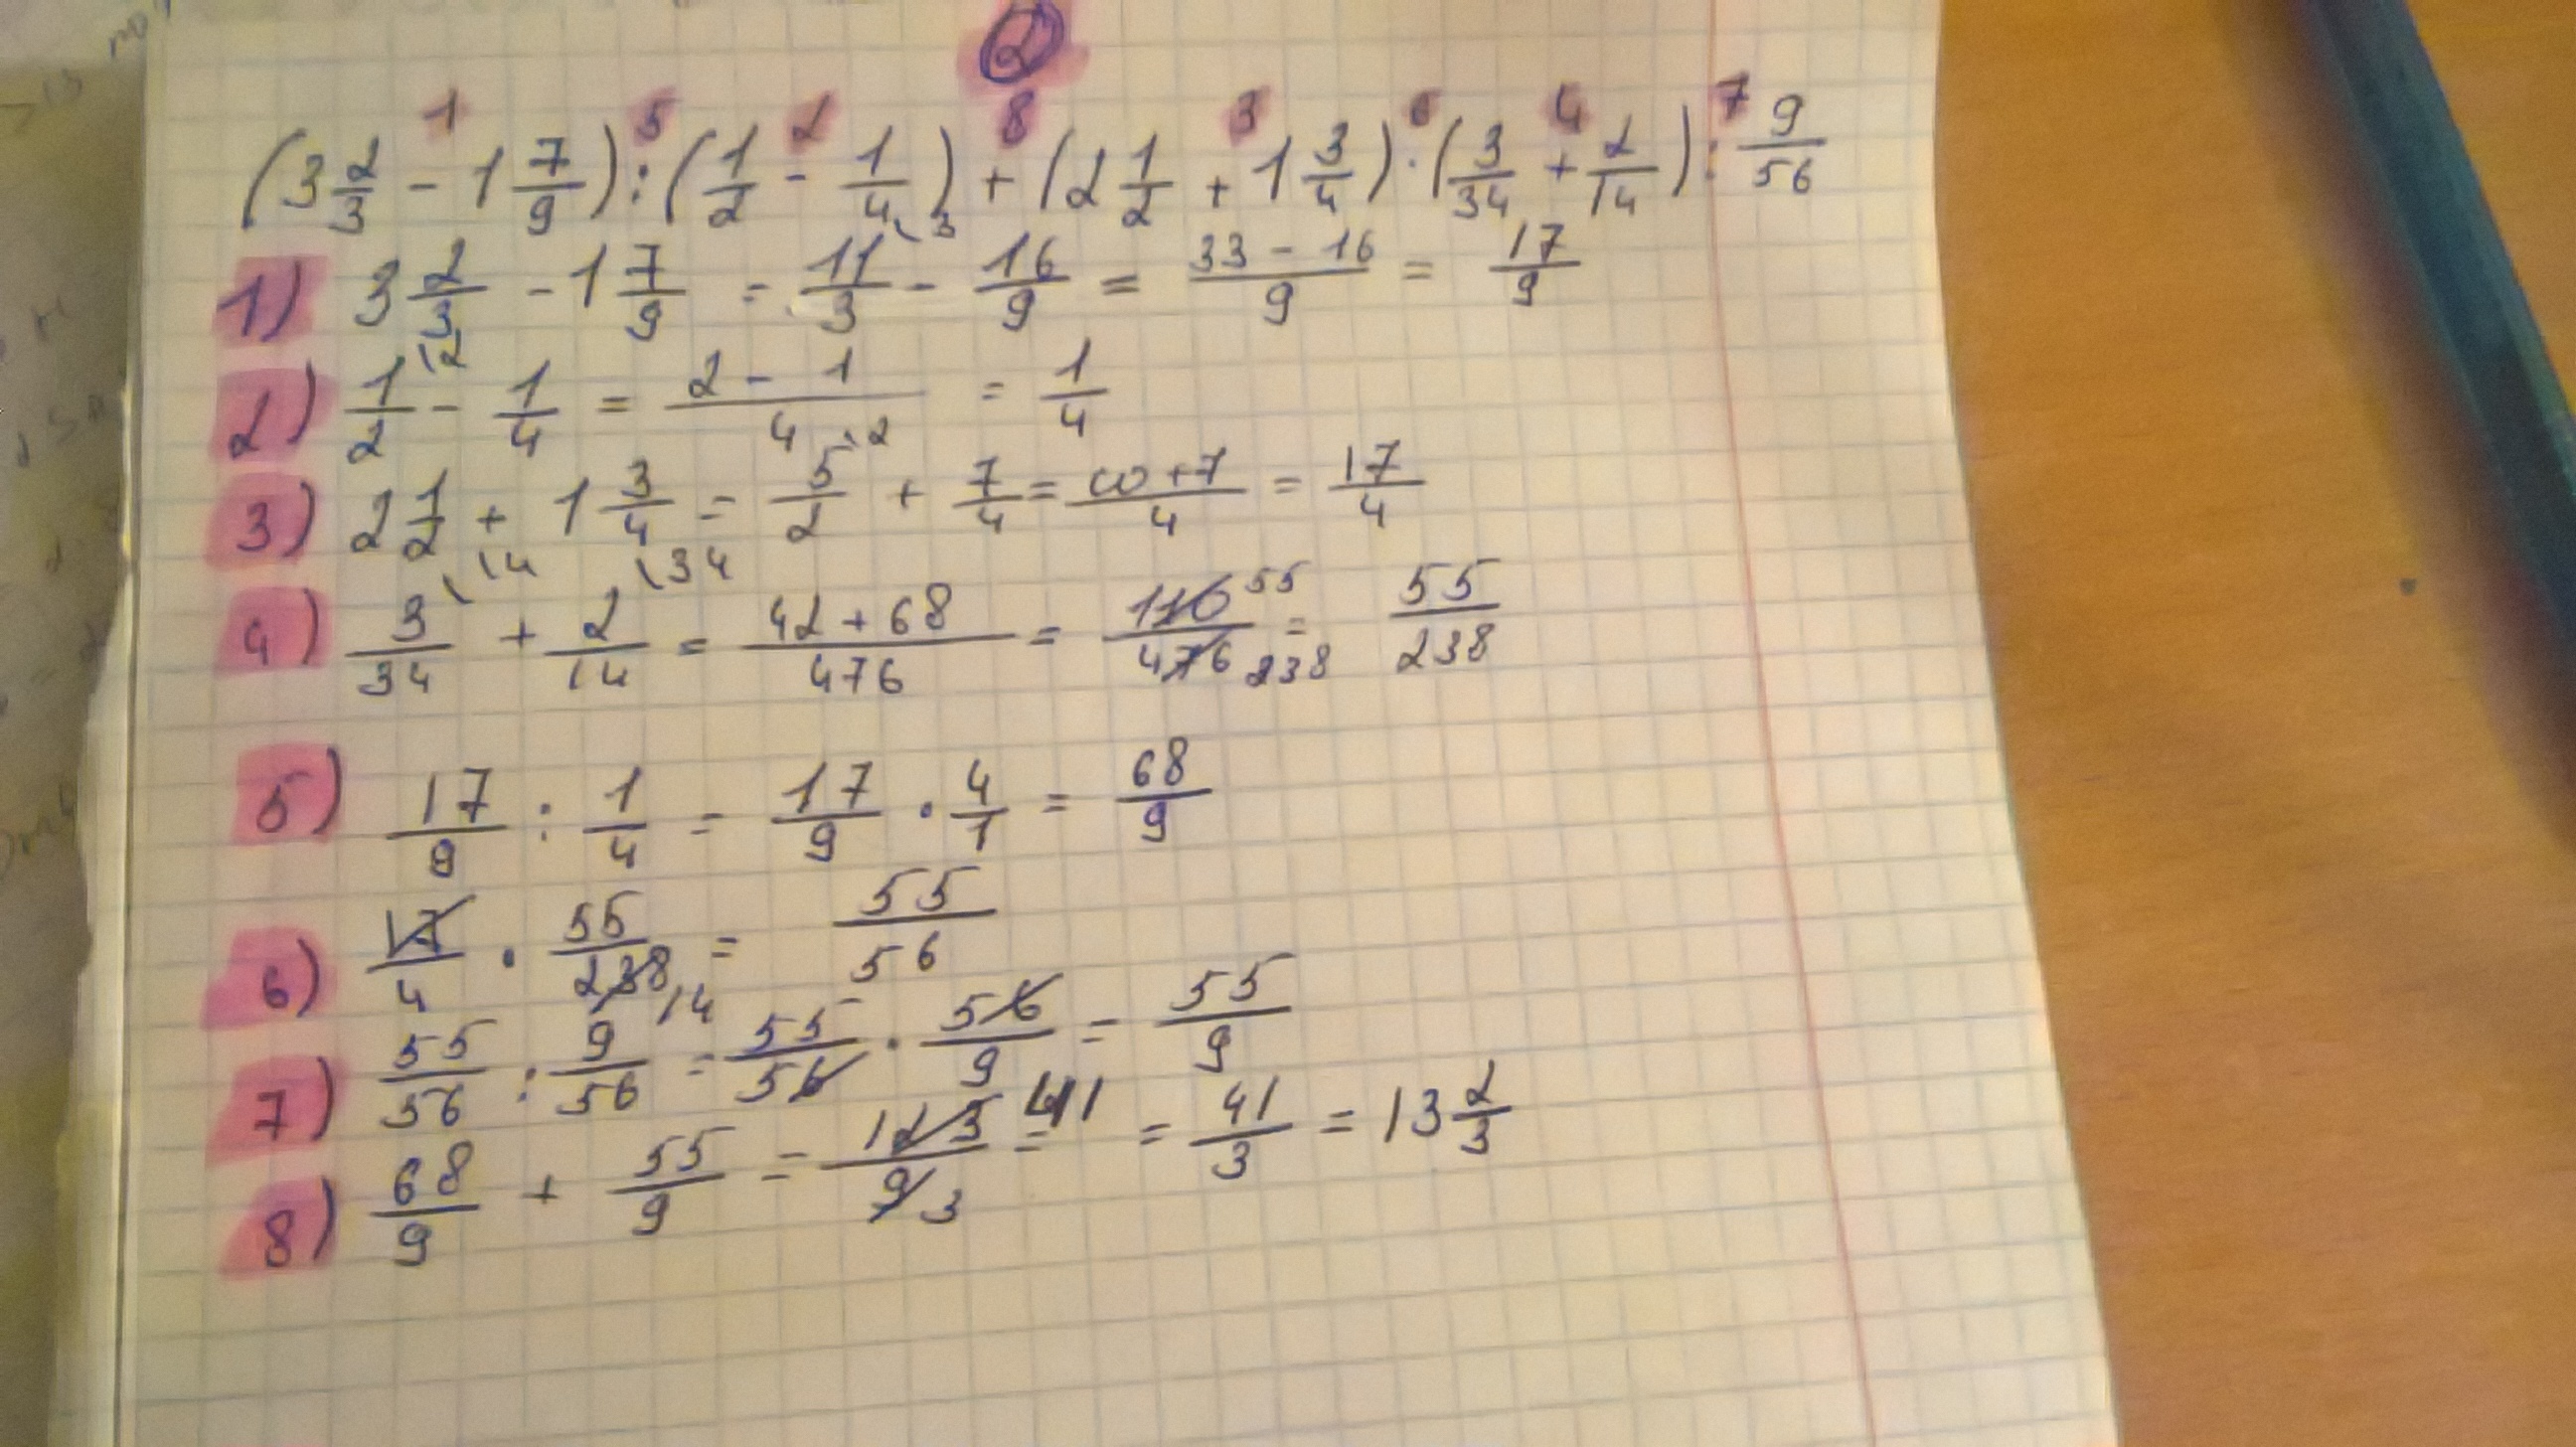 2
1 5 2 8 3 6 4 7
(3 2/3 - 1 7/9) : (1/2 - 1/4) + (2 1/2 + 1 3/4) · (3/34 + 2/14) : 9/56
1) 3 2/3 - 1 7/9 = 11/3 \3 - 16/9 = 33 - 16/9 = 17/9
2) 1/2 \2 - 1/4 = 2 - 1/4 = 1/4
3) 2 1/2 + 1 3/4 = 5/2 \2 + 7/4 = 10 + 7/4 = 17/4
4) 3/34 \14 + 2/14 \34 = 42 + 68/476 = 110/476 55/238 = 55/238
5) 17/9 : 1/4 = 17/9 · 4/1 = 68/9
6) 17/4 · 55/238 14 = 55/56
7) 55/56 : 9/56 = 55/56 · 56/9 = 55/9
8) 68/9 + 55/9 = 123/9 = 41/3 = 41/3 = 13 2/3